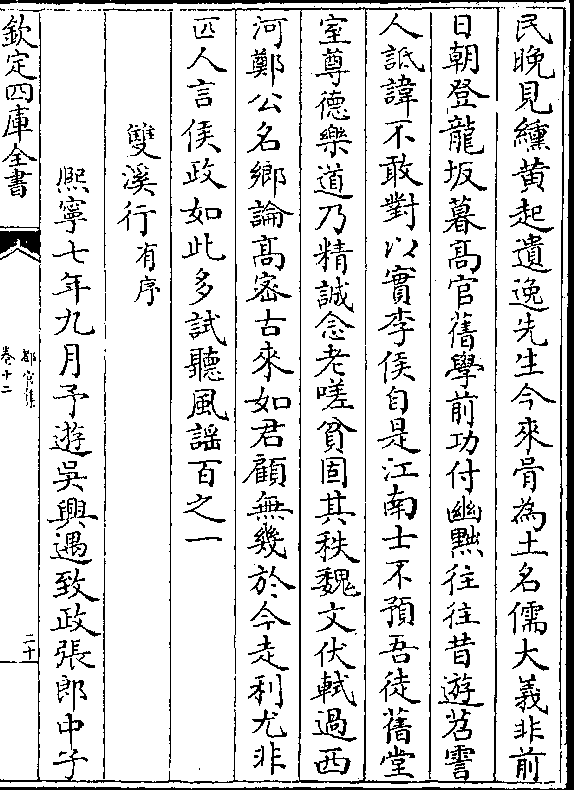 民晚見纁黄起遺逸先生今來骨為土名儒大義非前
日朝登龍坂暮髙官舊學前功付幽黙往往昔遊苕霅
人詆諱不敢對以實李侯自是江南士不預吾徒舊堂
室尊德樂道乃精誠念老嗟貧固其秩魏文伏軾過西
河鄭公名鄉論髙宻古來如君顧無幾於今走利尤非
匹人言侯政如此多試聽風謡百之一
雙溪行有序
熈寧七年九月予遊吳興遇致政張郎中子
欽定四庫全書
卷十二
二十